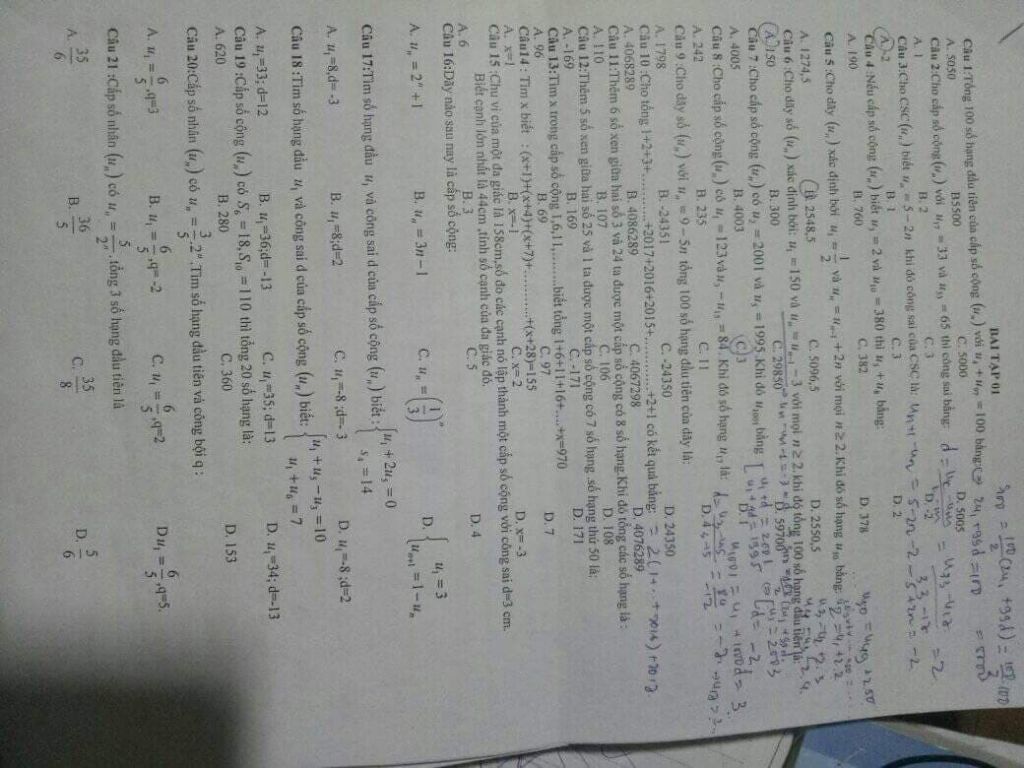 BÀI TẬP 01
Câu 1:Tổng 100 số hạng đầu tiên của cấp số cộng (uₙ) với u₁ + u₁₀₀ = 100 bằng:
A. 5050 B.5500 C. 5000 D. 5005
Câu 2:Cho cấp số cộng(uₙ) với u₁₇ = 33 và u₃₃ = 65 thì công sai bằng:
A. 1 B. 2 C. 3 D. -2
Câu 3:Cho CSC (uₙ) biết uₙ = 5 - 2n khi đó công sai của CSC là:
A. -2 B. 1 C. 3 D. 2
Câu 4 :Nếu cấp số cộng (uₙ) biết u₁ = 2 và u₁₀ = 380 thì u₅ + u₆ bằng:
A. 190 B. 760 C. 382 D. 378
Câu 5 :Cho dãy (uₙ) xác định bởi u₁ = 1/2 và uₙ = uₙ₋₁ + 2n với mọi n ≥ 2. Khi đó số hạng u₅₀ bằng:
A. 1274,5 B. 2548,5 C. 5096,5 D. 2550,5
Câu 6 :Cho dãy số (uₙ) xác định bởi: u₁ = 150 và uₙ = uₙ₋₁ - 3 với mọi n ≥ 2. khi đó tổng 100 số hạng đầu tiên là:
A. 150 B. 300 C. 29850 D. 59700
Câu 7 :Cho cấp số cộng (uₙ) có u₂ = 2001 và u₅ = 1995.Khi đó u₁₀₀₁ bằng
A. 4005 B. 4003 C. 3 D. 1
Câu 8 :Cho cấp số cộng (uₙ) có u₁ = 123 và u₃ - u₁₅ = 84. Khi đó số hạng u₁₇ là:
A. 242 B. 235 C. 11 D. 4
Câu 9 :Cho dãy số (uₙ) với uₙ = 9 - 5n tổng 100 số hạng đầu tiên của dãy là:
A. 1798 B. -24351 C. -24350 D. 24350
Câu 10 :Cho tổng 1+2+3+...........+2017+2016+2015+...........+2+1 có kết quả bằng:
A. 4068289 B. 4086289 C. 4067298 D. 4076289
Câu 11:Thêm 6 số xen giữa hai số 3 và 24 ta được một cấp số cộng có 8 số hạng.Khi đó tổng các số hạng là :
A. 110 B. 107 C. 106 D. 108
Câu 12:Thêm 5 số xen giữa hai số 25 và 1 ta được một cấp số cộng có 7 số hạng .số hạng thứ 50 là:
A. -169 B. 169 C. -171 D. 171
Câu 13:Tìm x trong cấp số cộng 1,6,11,..........biết tổng 1+6+11+16+....+x=970
A. 96 B. 69 C. 97 D. 7
Câu14 : Tìm x biết : (x+1)+(x+4)+(x+7)+...........+(x+28)=155
A. x=1 B. x=-1 C. x=-2 D. x=-3
Câu 15 :Chu vi của một đa giác là 158cm,số đo các cạnh nó lập thành một cấp số cộng với công sai d=3 cm.
Biết cạnh lớn nhất là 44cm ,tính số cạnh của đa giác đó.
A.6 B. 3 C. 5 D. 4
Câu 16:Dãy nào sau nay là cấp số cộng:
A. uₙ = 2ⁿ + 1 B. uₙ = 3n - 1 C. uₙ = (1/3)ⁿ D. { u₁ = 3; uₙ₊₁ = 1 - uₙ
Câu 17:Tìm số hạng đầu u₁ và công sai d của cấp số cộng (uₙ) biết: { u₁ + 2u₅ = 0; s₄ = 14
A. u₁=8,d=-3 B. u₁=8;d=2 C. u₁=-8 ;d=-3 D. u₁=-8 ;d=2
Câu 18 :Tìm số hạng đầu u₁ và công sai d của cấp số cộng (uₙ) biết: { u₁ + u₅ - u₃ = 10; u₁ + u₆ = 7
A. u₁=33; d=12 B. u₁=36;d=-13 C. u₁=35; d=13 D. u₁=34; d=-13
Câu 19 :Cấp số cộng (uₙ) có S₆ = 18, S₁₀ = 110 thì tổng 20 số hạng là:
A. 620 B. 280 C. 360 D. 153
Câu 20:Cấp số nhân (uₙ) có uₙ = 3/5.2ⁿ .Tìm số hạng đầu tiên và công bội q :
A. u₁ = 6/5,q=3 B. u₁ = 6/5,q=-2 C. u₁ = 6/5,q=2 D.u₁ = 6/5,q=5.
Câu 21 :Cấp số nhân (uₙ) có uₙ = 5/2ⁿ .tổng 3 số hạng đầu tiên là
A. 35/6 B. 36/5 C. 35/8 D. 5/6